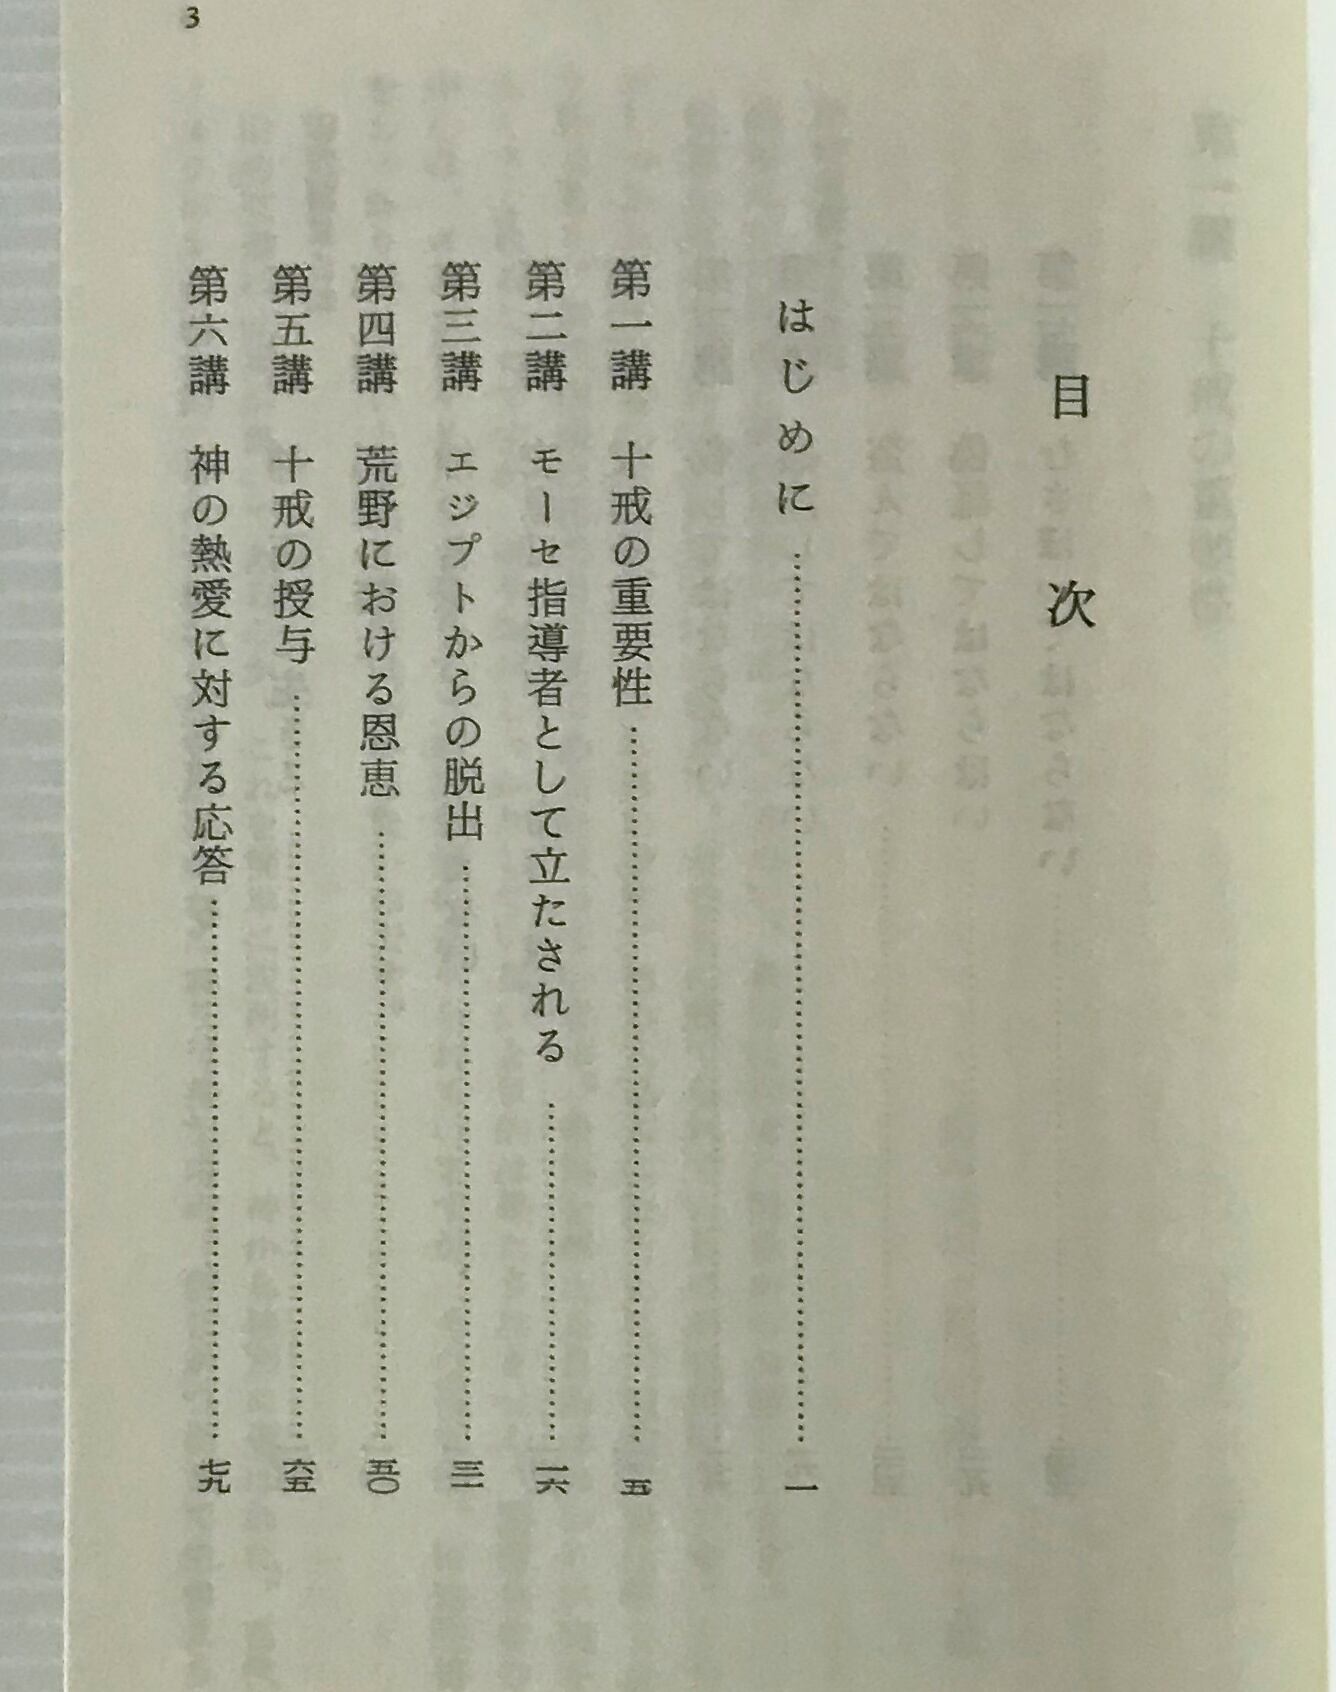 3
目次
はじめに……………一
第一講 十戒の重要性……………五
第二講 モーセ指導者として立たされる……………一六
第三講 エジプトからの脱出……………三一
第四講 荒野における恩恵……………五〇
第五講 十戒の授与……………六五
第六講 神の熱愛に対する応答……………七九